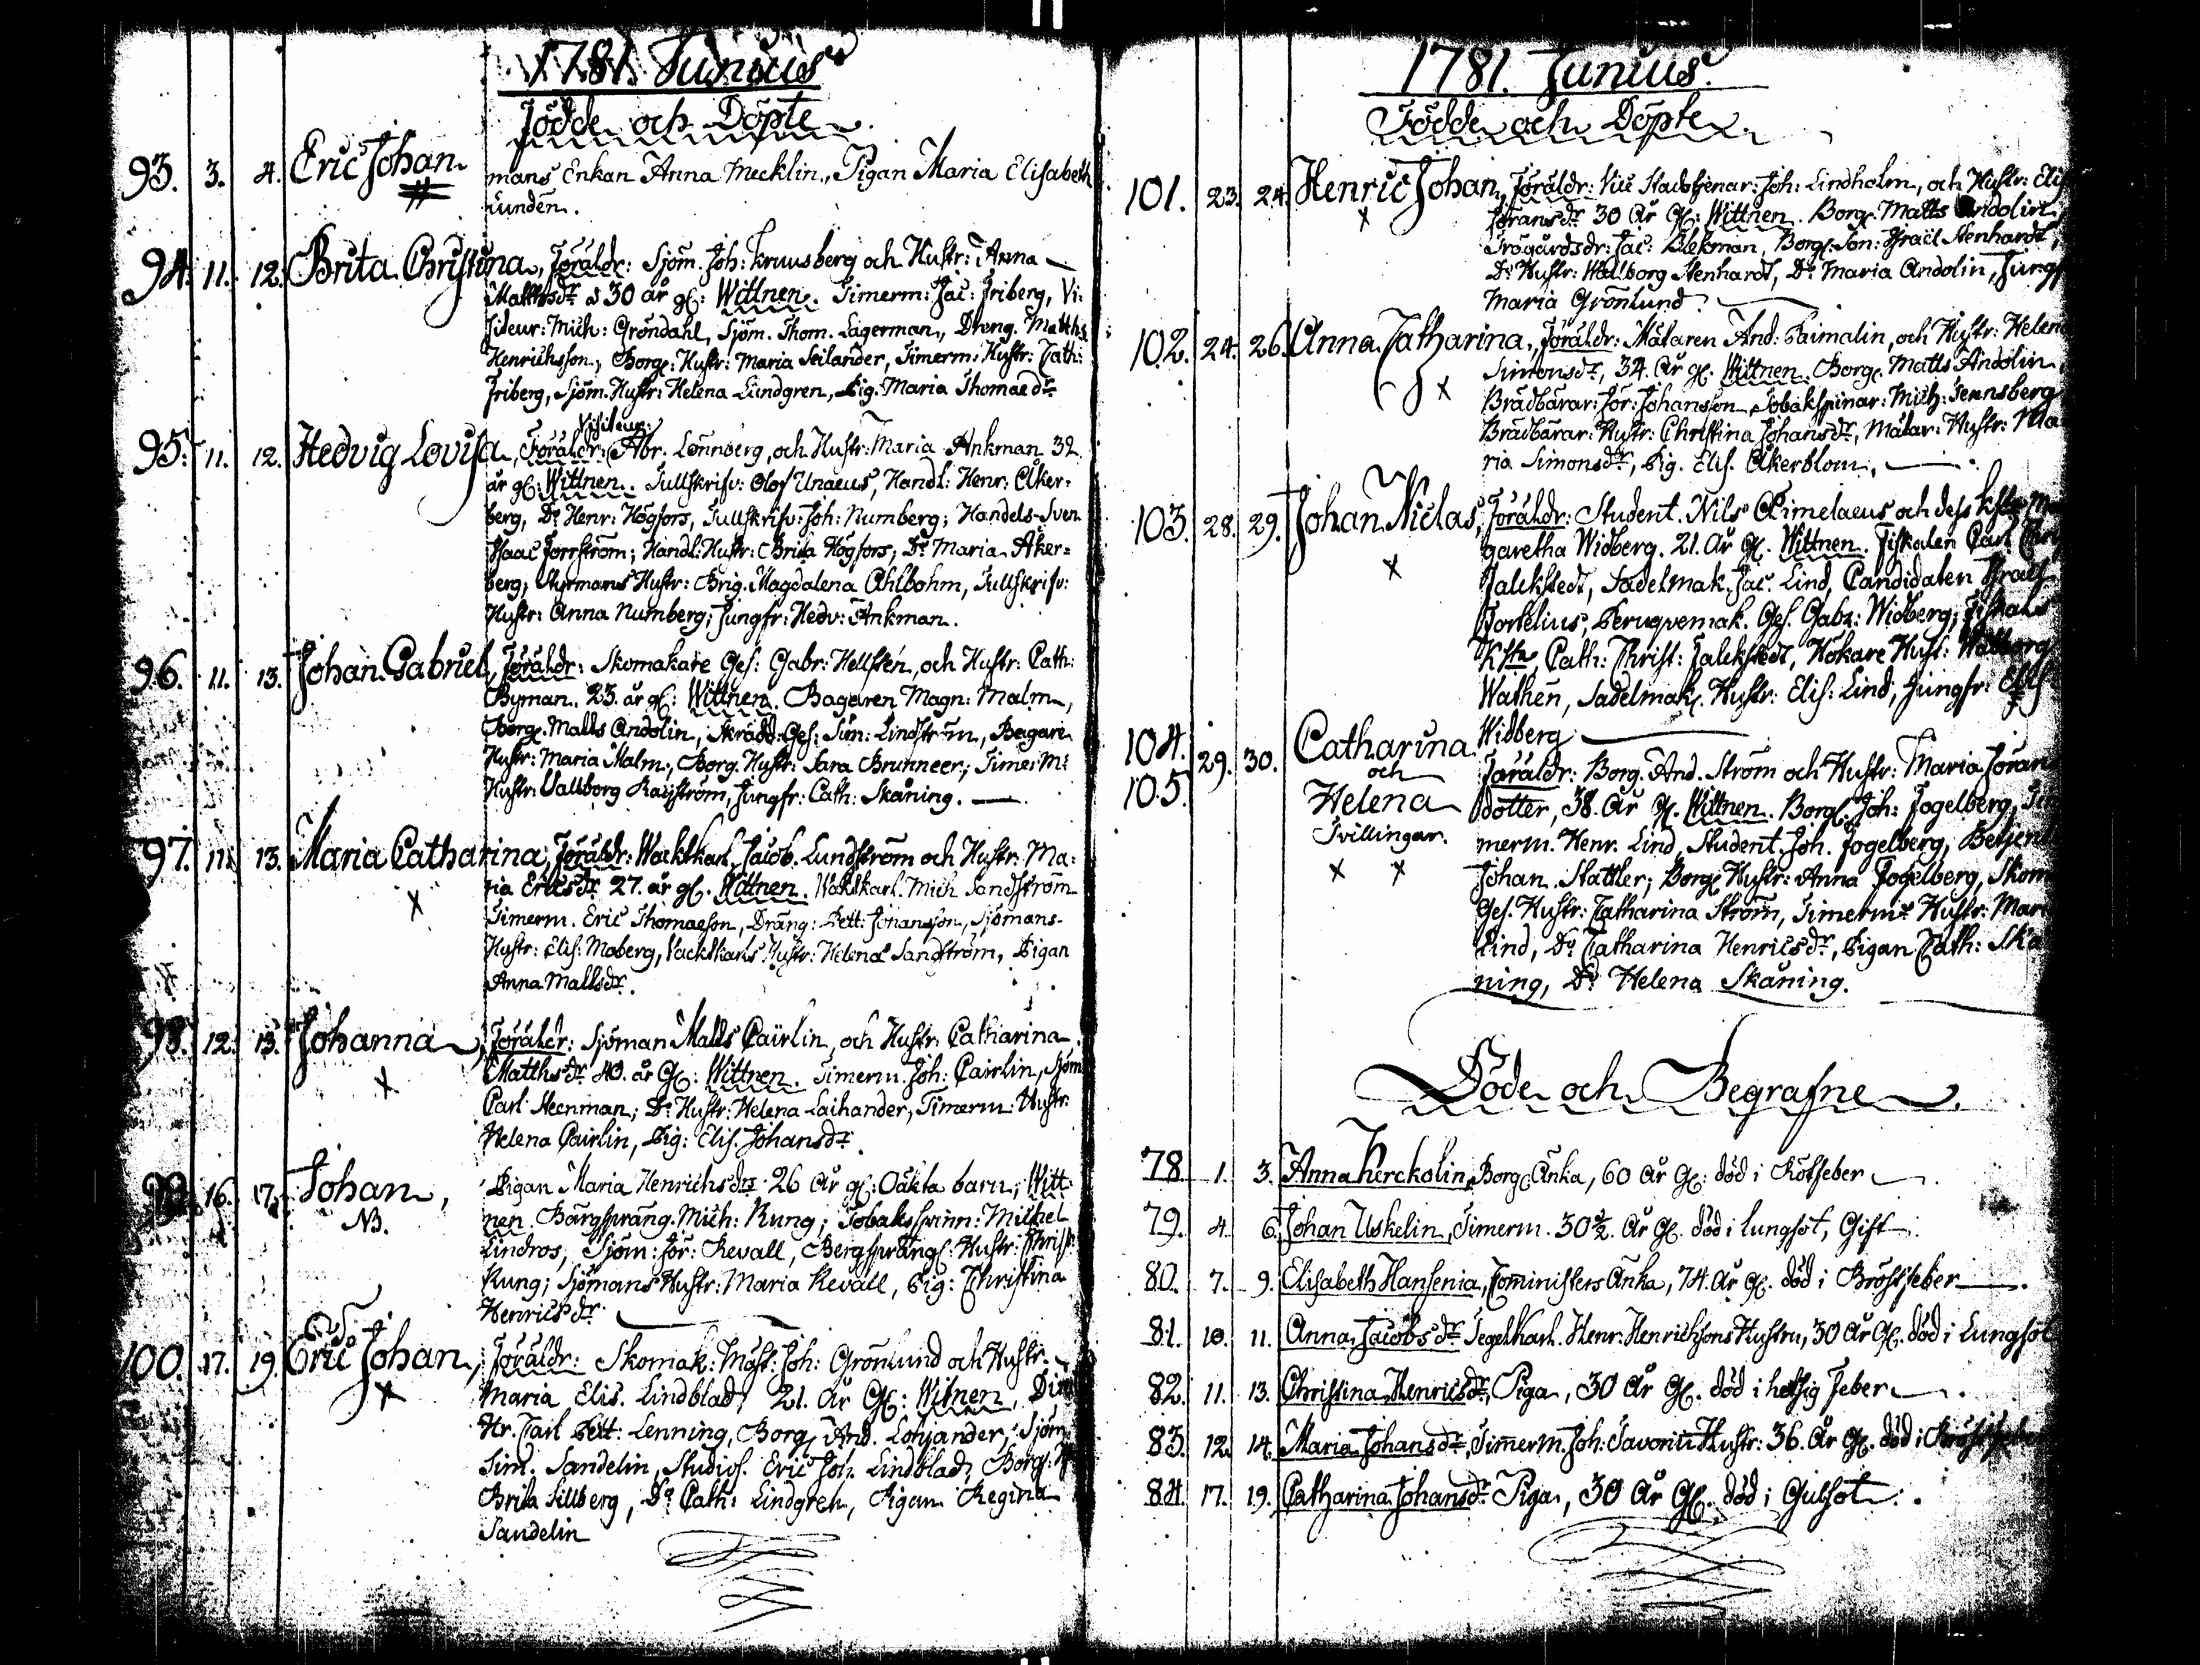 1781. Junius
Födde och Döpte
93. 3. 4. Eric Johan mans Enkan Anna Mecklin, Pigan Maria Elisabeth
Lunden.
94. 11. 12. Brita Christina, Föräldr: Sjöm. Joh: Kruusberg och Hustr: Anna
Matthsdr 30 år gl: Wittnen. Timerm: Jac: Friberg, Vi:
siteur: Mich: Gröndahl, Sjöm. Thom. Lagerman, Dreng. Matths
Henrichsson, Borg: Hustr: Maria Seilander, Timerm: Hustr: Cath:
Friberg, Sjöm. Hustr: Helena Lundgren, Pig. Maria Thomaedr
Visiteur:
95. 11. 12. Hedvig Lovisa, Föräldr: Abr. Lönnberg, och Hustr: Maria Ankman 32
år gl: Wittnen. Tullskrifv: Olof Unaeus, Handl: Henr: Åker-
berg, Do Henr: Högfors, Tullskrifv: Joh: Numberg; Handels-Sven
Isaac Forrström; Handl: Hustr: Brita Högfors; Do Maria Åker=
berg; Styrmans Hustr: Brig. Magdalena Ahlbohm, Tullskrifv:
Hustr: Anna Numberg; Jungfr: Hedv: Ankman.
96. 11. 13. Johan Gabriel, Föräldr: Skomakare Ges: Gabr: Hellstén, och Hustr: Cath:
Byman. 23. år gl: Wittnen. Bagaren Magn: Malm,
Borg. Matts Andolin, Skrädd: Ges: Sim: Lindström, Bagare
Hustr: Maria Malm, Borg. Hustr: Sara Brunneer; Timerm:
Hustr: Vallborg Kajström, Jungfr: Cath: Skåning.
97. 11. 13. Maria Catharina, Föräldr: Wachtkarl Jacob Lundström och Hustr: Ma:
x
ria Ericsdr 27. år gl. Wittnen. Waktkarl. Mich Sandström
Timerm. Eric Thomaeson, Dräng: Pett: Johansson, Sjömans-
Hustr: Elis: Moberg, Vacktkarls Hustr: Helena Sandström, Pigan
Anna Mattsdr.
98. 12. 13. Johanna, Föräldr: Sjöman Matts Cairlin, och Hustr: Catharina
x
Matthsdr 40. år Gl: Wittnen. Timerm. Joh: Cairlin, Sjöm
Carl Steenman; Do Hustr: Helena Laihander, Timerm: Hustr.
Helena Cairlin, Pig: Elis. Johansdr.
99. 16. 17. Johan, Pigan Maria Henrichsdr 26 år gl: Oäkta barn; Witt-
NB.
nen. Bärgspräng. Mich: Kung; Tobaksspinn: Michel
Lindros, Sjöm: Jör: Revall, Bergsprängs. Hustr: Christ
Kung; Sjömans Hustr: Maria Revall, Pig: Christina
Henricsdr.
100. 17. 19. Eric Johan, Föräldr: Skomak: Mäst: Joh: Grönlund och Hustr.
x
Maria Elis. Lindblad, 21. år Gl: Witnen,
Hr. Carl Pett: Lenning, Borg. And. Lohjander, Sjöm
Sim. Sandelin, Studios. Eric Joh. Lindblad, Borg:
Brita Sillberg, Do Cath: Lindgren, Pigan Regina
Sandelin
1781. Junius.
Födde och Döpte
101. 23. 24. Henric Johan, Föräldr: Vice Stadstjenar: Joh: Lindholm, och Hustr: Elis
x
Jöransdr 30 år gl: Wittnen. Borg. Matts Andolin,
Trägårdsdr: Jac: Blekman, Borg. Son: Israel Stenhardt,
Do Hustr: Wallborg Stenhardt, Do Maria Andolin, Jungf
Maria Grönlund
102. 24. 26. Anna Catharina, Föräldr: Mätaren And: Paimalin, och Hustr: Helena
x
Simonsdr, 34. år gl. Wittnen. Borg. Matts Andolin,
Brädbärar: Jör: Johansson, Tobakspinar: Mich: Tennsberg
Brädbärar: Hustr: Christina Johansdr, Mätar: Hustr: Ma
ria Simonsdr, Pig. Elis. Åkerblom,
103. 28. 29. Johan Niclas, Föräldr: Student. Nils Aimelaeus och dess Kstr Ma
x
garetha Widberg. 21. år gl. Wittnen. Fiskalen Carl Chri
Falckstedt, Sadelmak. Jac. Lind, Candidaten Israel
Forselius, Peruqvemak. Ges. Gabr: Widberg; Fiskals
Cath: Christ: Falckstedt, Hökare Hust: Walborg
Wathén, Sadelmak. Hustr: Elis: Lind, Jungfr: Elis:
Widberg
104. 105. 29. 30. Catharina och Helena Tvillingar.
x x
Föräldr: Borg. And. Ström och Hustr: Maria Jöran
dotter, 38. år gl. Wittnen. Borg. Joh: Fogelberg, Ti
merm. Henr. Lind, Student. Joh. Fogelberg, Betjent
Johan Stattler; Borg. Hustr: Anna Fogelberg, Skom
Ges. Hustr: Catharina Ström, Timerms Hustr: Mar
Lind, Do Catharina Henricsdr, Pigan Cath: Skå
ning, Do Helena Skåning.
Döde och Begrafne
78 1. 3. Anna Kerckolin, Borg. Änka, 60 år Gl: död i Rötfeber
79. 4 6. Johan Uskelin, Timerm. 30 1/2. år Gl. död i lungsot, Gift
80. 7. 9. Elisabeth Hansenia, Cominsters Änka, 74. år gl. död i Bröstfeber
81. 10. 11. Anna Jacobsdr Segelkarl. Henr: Henrichsons Hustru, 30 år Gl. död i Lungsot
82. 11. 13. Christina Henricsdr, Piga, 30 år Gl. död i hetsig Feber
83. 12. 14. Maria Johansdr, Timerm. Joh: Savoni Hustr: 36. år Gl. död i Bröstfeber
84. 17. 19. Catharina Johansdr Piga, 30 år Gl. död i Gulsot.